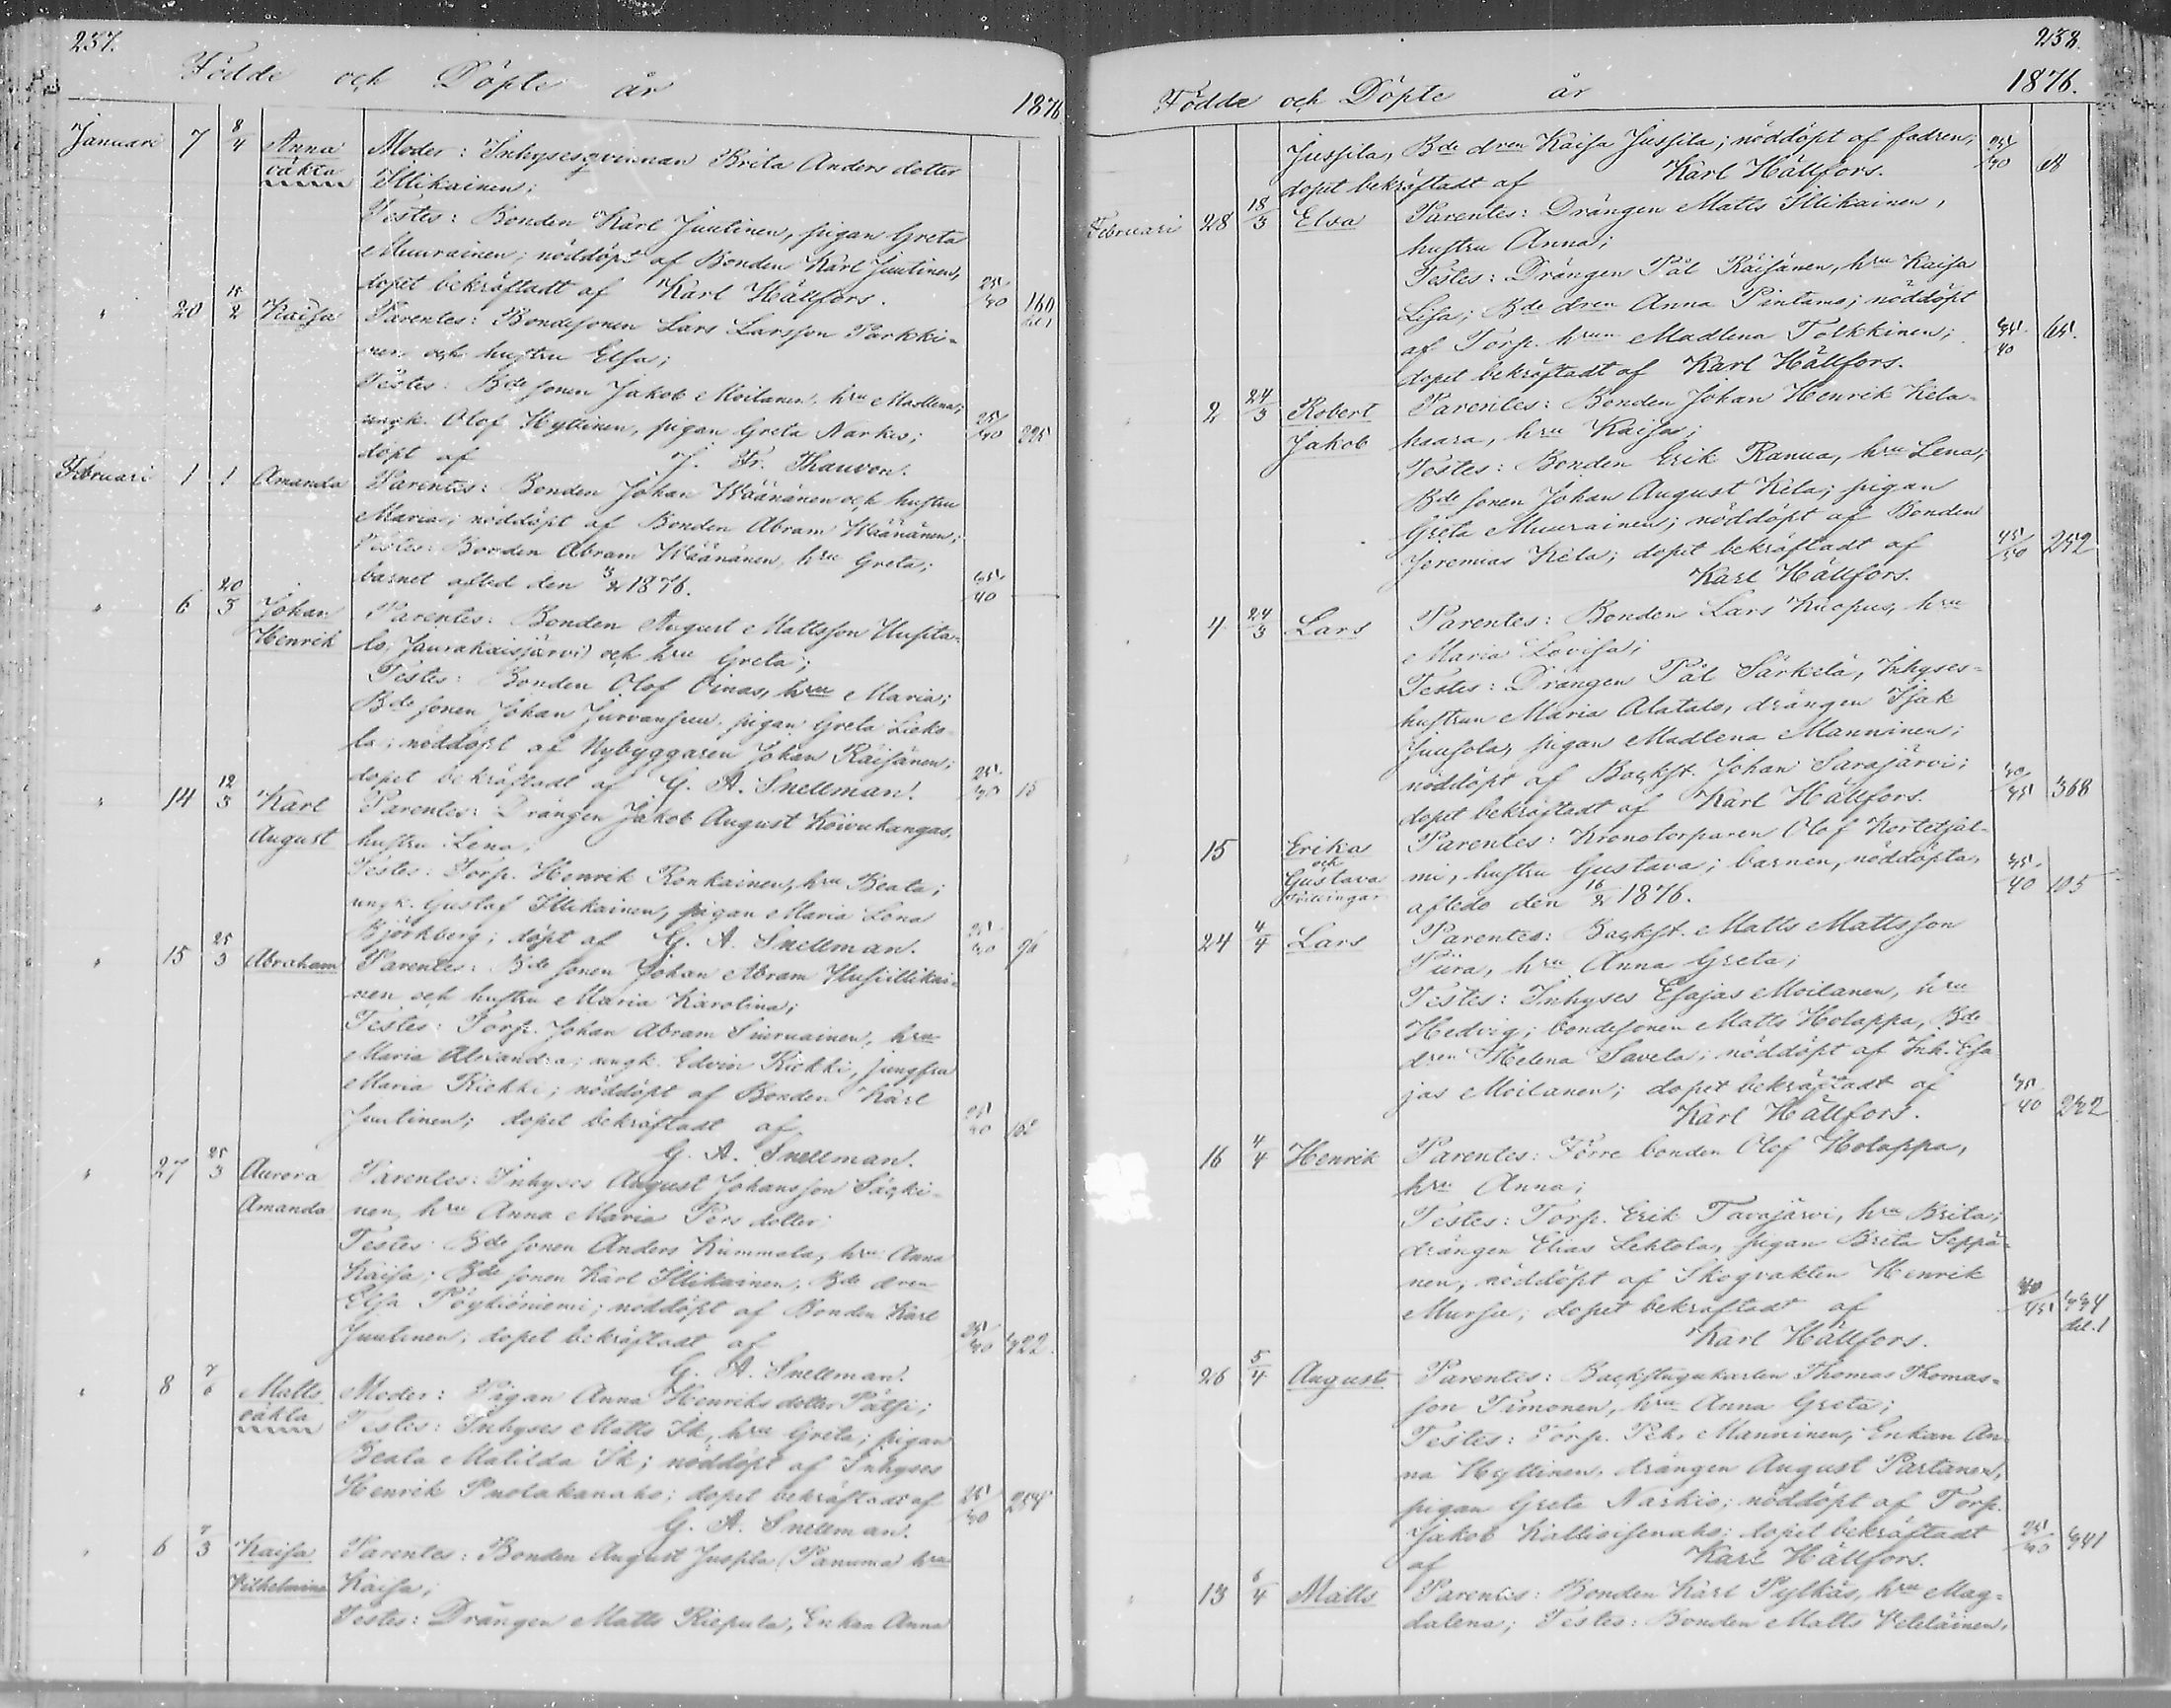 257.
Födde och Döpte år 1876
Januari 7 8/4 Anna Moder: Inhysesqvinnan Brita Anders dotter
oäkta Illikainen;
Testes: Bonden Karl Juutinen, pigan Greta
Muurainen; nöddöpt af Bonden Karl Juutinen,
dopet bekräftadt af Karl Hällfors. 25/30 160
" 20 15/2 Kaisa Parentes: Bondesonen Lars Larsson Parkki-
nen och hustru Elsa;
Testes: Bde sonen Jakob Moilanen, hru Madlena;
ungk. Olof Hyttinen, pigan Greta Narkio;
döpt af J. Fr. Thauvon. 225
Februari 1 1 Amanda Parentes: Bonden Johan Wäänänen och hustru
Maria; nöddöpt af Bonden Abram Wäänänen;
Testes: Bonden Abram Wäänänen, hru Greta;
barnet afled den 3/2 1876. 35/40
" 6 20/3 Johan Parentes: Bonden August Mattsson Uusita-
Henrik lo, Jaurakaisjärvi) och hru Greta;
Testes: Bonden Olof Oinas, hru Maria;
Bde sonen Johan Jurvansuu, pigan Greta Lieko-
la; nöddöpt af Nybyggaren Johan Räisänen;
dopet bekräftadt af G. A. Snellman. 15
" 14 12/3 Karl Parentes: Drängen Jakob August Koivukangas,
August hustru Lena;
Testes: Torp. Henrik Ronkainen, hru Beata;
ungk. Gustaf Illikainen, pigan Maria Lena
Björkberg; döpt af G. A. Snellman.
" 15 25/3 Abraham Parentes: Bde sonen Johan Abram Uusiillikai-
nen och hustru Maria Karolina;
Testes: Torp. Johan Abram Siuruainen, hru
Maria Alexandra; ungk. Edvin Kiekki, jungfru
Maria Kiekki; nöddöpt af Bonden Karl
Juutinen; dopet bekräftadt af 162
G. A. Snellman.
" 27 25/3 Aurora Parentes: Inhyses August Johansson Säkki-
Amanda nen, hru Anna Maria Pers dotter;
Testes: Bde sonen Anders Kummala, hru Anna
Kaisa; Bde sonen Karl Illikainen, Bde dren
Elsa Pöykiöniemi; nöddöpt af Bonden Karl
Juutinen; dopet bekräftadt af 35/40 322.
G. A. Snellman.
" 8 7/6 Matts Moder: Pigan Anna Henriks dotter Pätsi;
oäkta Testes: Inhyses Matts Ik, hru Greta; pigan
Beata Matilda Ik; nöddöpt af Inhyses
Henrik Puolakanaho; dopet bekräftadt af 25/30
G. A. Snellman.
" 6 7/3 Kaisa Parentes: Bonden August Jussila (Panuma) hru
Vilhelmina Kaisa;
Testes: Drängen Matts Riepula, Enkan Anna
258.
Födde och Döpte år 1876.
Jussila, Bde dren Kaisa Jussila; nöddöpt af fadren;
dopet bekräftadt af Karl Hällfors.
Februari 28 18/3 Elsa Parentes: Drängen Matts Illikainen,
hustru Anna;
Testes: Drängen Pål Räisänen, hru Kaisa
Lisa; Bde dren Anna Pintamo; nöddöpt
af Torp. hrun Madlena Tolkkinen; 35/40 65.
dopet bekräftadt af Karl Hällfors.
2 24/3 Robert Parentes: Bonden Johan Henrik Kela-
Jakob haara, hru Kaisa;
Testes: Bonden Erik Ranua, hru Lena;
Bde sonen Johan August Kela; pigan
Greta Muurainen; nöddöpt af Bonden
Jeremias Kela; dopet bekräftadt af 45/50 252
Karl Hällfors.
4 24/3 Lars Parentes: Bonden Lars Kuopus, hru
Maria Lovisa;
Testes: Drängen Pål Särkelä, Inhyses-
hustrun Maria Alatalo, drängen Isak
Juusola, pigan Madlena Manninen;
nöddöpt af Backst. Johan Sarajärvi;
dopet bekräftadt af Karl Hällfors. 368
15 Erika Parentes: Kronotorparen Olof Kortetjär-
och
Gustava mi, hustru Gustava; barnen, nöddöpta,
Tvillingar afledo den 16/2 1876. 35/40 105
24 4/4 Lars Parentes: Backst. Matts Mattsson
Piira, hru Anna Greta;
Testes: Inhyses Esajas Moilanen, hru
Hedvig; bondesonen Matts Holappa, Bde
dren Helena Savela; nöddöpt af Inh. Esa
jas Moilanen; dopet bekräftadt af 35/40
Karl Hällfors.
16 4/4 Henrik Parentes: Förre bonden Olof Holappa,
hru Anna;
Testes: Torp. Erik Tavajärvi, hru Brita;
drängen Elias Lehtola, pigan Brita Seppä-
nen; nöddöpt af Skogvakten Henrik
Mursu; dopet bekräftadt af 40/45 334
del. 1
Karl Hällfors.
26 5/4 August Parentes: Backstugukarlen Thomas Thomas-
son Timonen, hru Anna Greta;
Testes: Torp. Pehr Manninen, Enkan An-
na Hyttinen, drängen August Partanen,
pigan Greta Narkio; nöddöpt af Torp.
Jakob Kallioisenaho; dopet bekräftadt 341
af Karl Hällfors.
13 /4 Matts Parentes: Bonden Karl Pylkäs, hru Mag-
dalena; Testes: Bonden Matts Veteläinen,